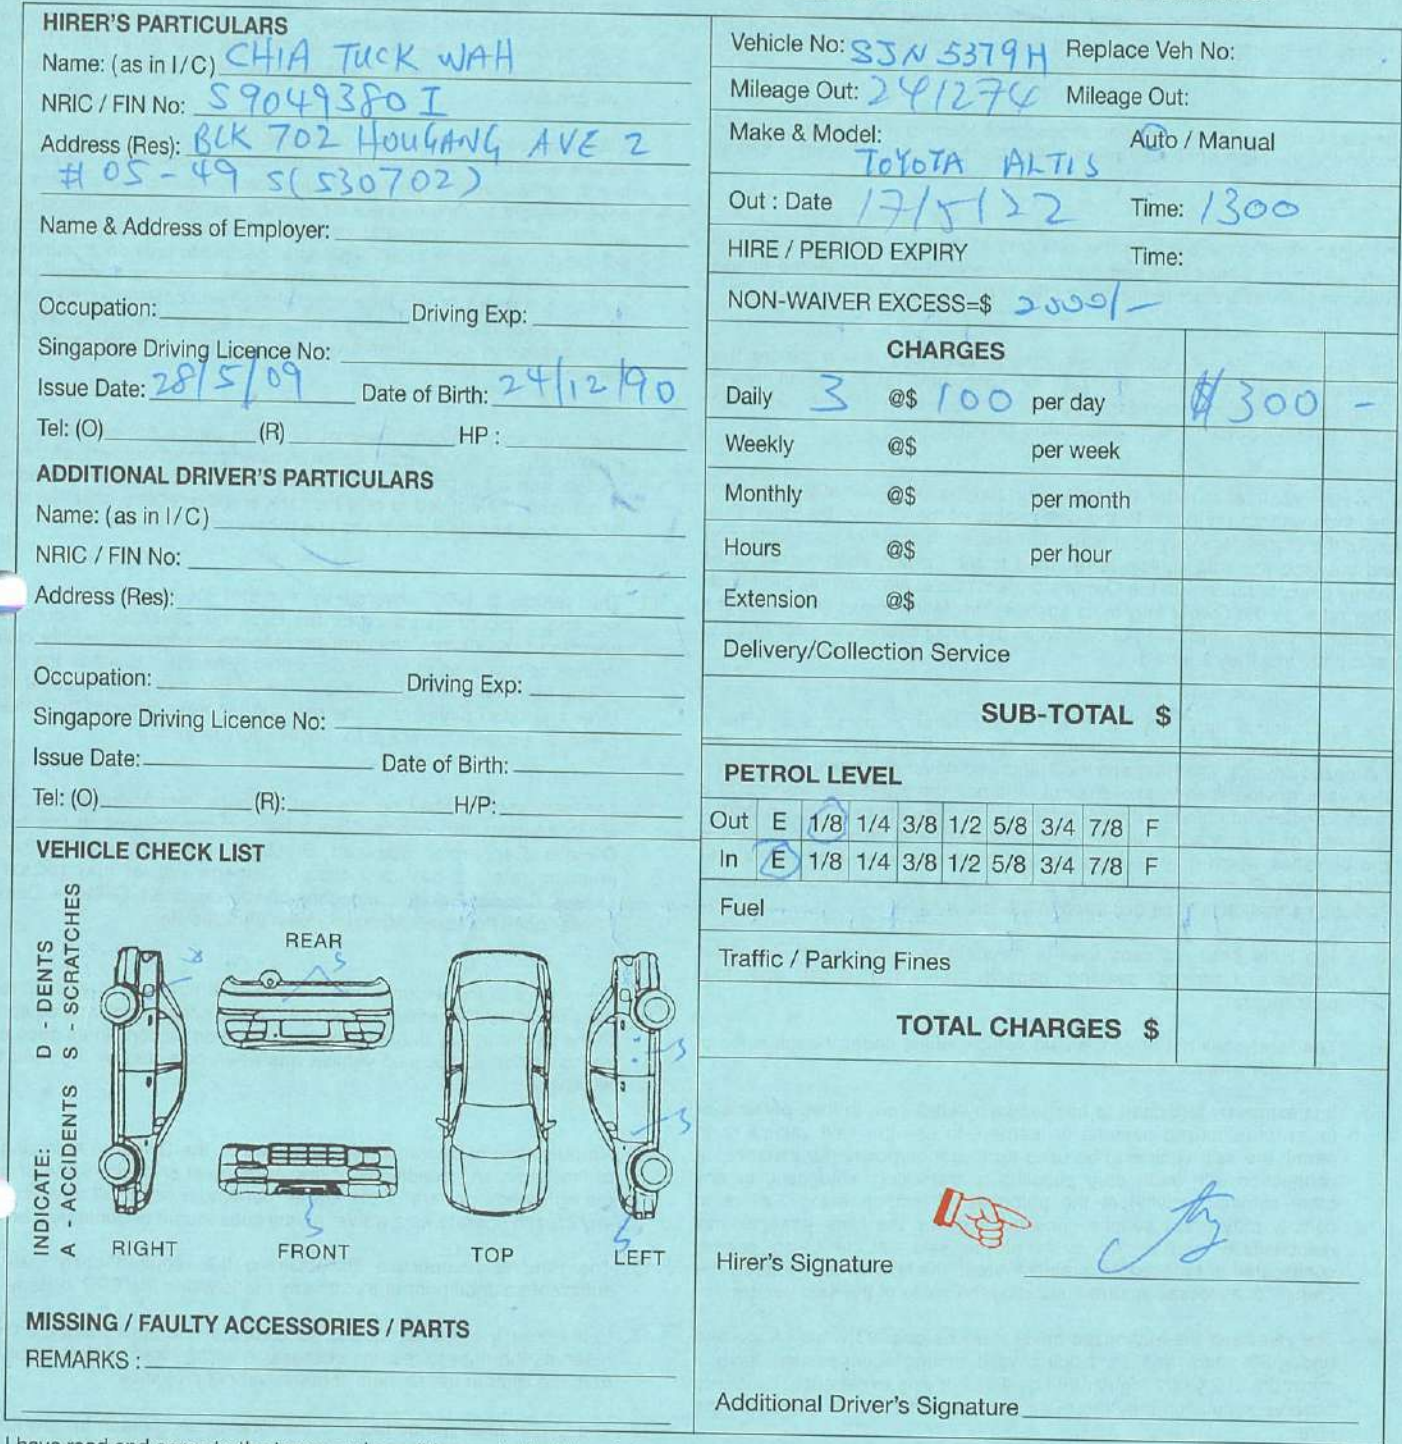 HIRER'S PARTICULARS
Name: (as in I/C) CHIA TUCK WAH
NRIC / FIN No: S9049380I
Address (Res): BLK 702 HOUGANG AVE 2
# 05-49 S(530702)
Name & Address of Employer:
Occupation: Driving Exp:
Singapore Driving Licence No:
Issue Date: 28/5/09 Date of Birth: 24/12/90
Tel: (O) (R) HP :
ADDITIONAL DRIVER'S PARTICULARS
Name: (as in I/C)
NRIC / FIN No:
Address (Res):
Occupation: Driving Exp:
Singapore Driving Licence No:
Issue Date: Date of Birth:
Tel: (O) (R): H/P:
VEHICLE CHECK LIST
INDICATE: D - DENTS
A - ACCIDENTS S - SCRATCHES
REAR
S
S
S
S
S
RIGHT FRONT TOP LEFT
MISSING / FAULTY ACCESSORIES / PARTS
REMARKS :
Vehicle No: SJN 5379H Replace Veh No:
Mileage Out: 241274 Mileage Out:
Make & Model: Auto / Manual
TOYOTA ALTIS
Out : Date 17/5/22 Time: 1300
HIRE / PERIOD EXPIRY Time:
NON-WAIVER EXCESS=$ 2000/-
CHARGES
Daily 3 @$ 100 per day $300 -
Weekly @$ per week
Monthly @$ per month
Hours @$ per hour
Extension @$
Delivery/Collection Service
SUB-TOTAL $
PETROL LEVEL
Out E 1/8 1/4 3/8 1/2 5/8 3/4 7/8 F
In E 1/8 1/4 3/8 1/2 5/8 3/4 7/8 F
Fuel
Traffic / Parking Fines
TOTAL CHARGES $
Hirer's Signature
Additional Driver's Signature